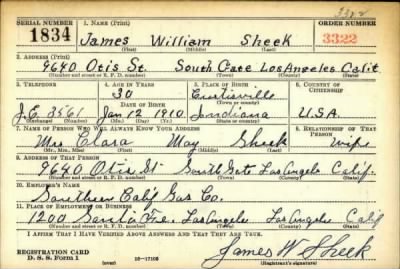 SERIAL NUMBER 1. NAME (Print) ORDER NUMBER
1834 James William Sheek 3322
(First) (Middle) (Last)
2. ADDRESS (Print)
9640 Otis St. South Gate Los Angeles Calif
(Number and street or R. F. D. number) (Town) (County) (State)
3. TELEPHONE 4. AGE IN YEARS 5. PLACE OF BIRTH 6. COUNTRY OF CITIZENSHIP
30 Curtisville
DATE OF BIRTH (Town or county)
J.E. 3561 Jan 12 1910 Indiana U.S.A.
(Exchange) (Number) (Mo.) (Day) (Yr.) (State or country)
7. NAME OF PERSON WHO WILL ALWAYS KNOW YOUR ADDRESS 8. RELATIONSHIP OF THAT PERSON
Mrs. Clara May Sheek Wife
(Mr., Mrs., Miss) (First) (Middle) (Last)
9. ADDRESS OF THAT PERSON
9640 Otis St South Gate Los Angeles Calif.
(Number and street or R. F. D. number) (Town) (County) (State)
10. EMPLOYER'S NAME
Southern Calif Gas Co.
11. PLACE OF EMPLOYMENT OR BUSINESS
1200 Santa Fe. Los Angeles Los Angeles Calif
(Number and street or R. F. D. number) (Town) (County) (State)
I AFFIRM THAT I HAVE VERIFIED ABOVE ANSWERS AND THAT THEY ARE TRUE.
REGISTRATION CARD
D. S. S. Form 1 (over) 16—17105 James W Sheek
(Registrant's signature)